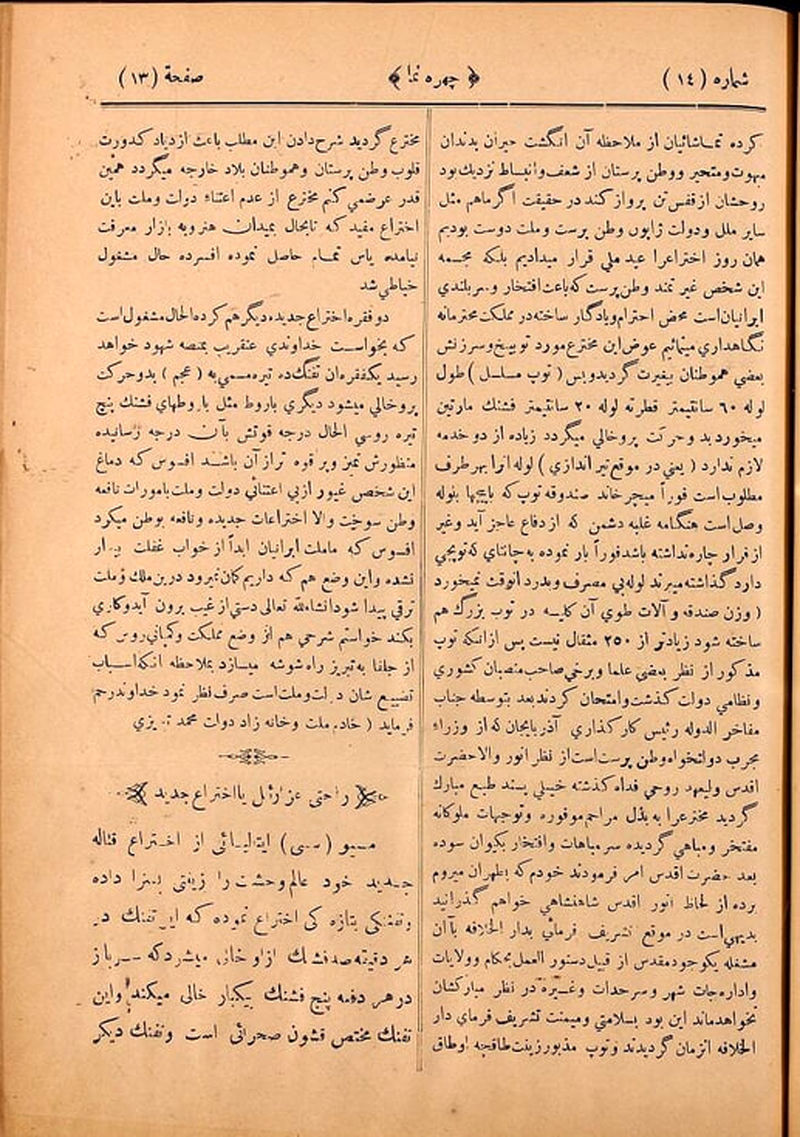 شماره (١٤)
﴿ چهره نما ﴾
صفحة (١٣)
کرده تماشائیان از ملاحظه آن انگشت حیران بدندان
مبهوت ومتحیر ووطن پرستان از شعف وانبساط نزدیك بود
روحشان از قفس تن پرواز کند در حقیقت اگر ماهم مثل
سایر ملل ودولت ژاپون وطن پرست وملت دوست بودیم
همان روز اختراعرا عید ملی قرار میدادیم بلکه مجسمه
این شخص غیرتمند وطن پرست که باعث افتخار وسربلندي
ایرانیان است محض احترام ویادگار ساخته در مملکت محترمانه
نگاهداري مینمائیم عوض این مخترع مورد توبیخ وسرزنش
بعضي هموطنان بیغیرت گردید وبس (توپ مسلسل) طول
لوله ٦٠ سانتیمتر قطر ته لوله ٢٠ سانتیمتر فشنك مارتین
میخورد بد وحرکت پروخالي میگردد زیاده از دو خدمه
لازم ندارد (یعني در موقع تیراندازي) لوله انرا بهر طرف
مطلوب است فوراً میچرخاند صندوقه توپ که باپیچها بلوله
وصل است هنگامه غلبه دشمن که از دفاع عاجز آید وغیر
از فرار چاره نداشته باشد فوراً بار نموده به چانتاي که توپچي
دارد گذاشته میبرند لوله بي مصرف وبدرد انوقت نمیخورد
(وزن صندقه و آلات طوي آن کلیسه در توپ بزرگ هم
ساخته شود زیادتر از ٢٥٠ مثقال نیست پس از انکه توپ
مذکور از نظر بعضي علما وبرخي صاحب منصبان کشوري
ونظامي دولت گذشت وامتحان کردند بعد بتوسطه جناب
مفاخر الدوله رئیس کارگذاري آذربایجان که از وزراء
مجرب دولتخواه وطن پرست است از نظر انور والاحضرت
اقدس ولیعهد روحي فداه گذشته خیلي پسند طبع مبارك
گردید مخترعرا به بذل مراحم موفوره وتوجهات ملوکانه
مفتخر ومباهي گردیده سر مباهات وافتخار بکیوان سوده
بعد حضرت اقدس امر فرمودند خودم که بطهران میروم
برده از لحاظ انور اقدس شاهنشاهي خواهم گذرانید
بدیهي است در موقع تشریف فرمائي بدار الخلافه باآن
مشغله یکوجود مقدس از قبیل دستور العمل بحکام وولایات
واداره جات شهر وسرحدات وغیره در نظر مبارکشان
نخواهد ماند این بود بسلامتي ومیمنت تشریف فرماي دار
الخلافه اتزمان گردیدند وتوپ مذبور زینت طاقچه اوطاق
مخترع گردید شرح دادن این مطلب باعث ازدیاد کدورت
قلوب وطن پرستان وهموطنان بلاد خارجه میگردد همین
قدر عرض مي کنم مخترع از عدم اعتناء دولت وملت باین
اختراع مفید که تابحال بمیدان هنر وبه بازار معرفت
نیامده یاس تمام حاصل نموده افسرده حال مشغول
خیاطي شد
دو فقره اختراع جدیده دیگر هم کرده الحال مشغول است
که بخواست خداوندي عنقریب بمنصه شهود خواهد
رسید یکفقره ان تفنك ده تیره مسمي به (عجم) بدوحرکت
پروخالي میشود دیگري باروط مثل باروطهاي فشنك پنج
تیره روسي الحال درجه قوتش بآن درجه رسانیده
منظورش تمیز وپر قوه تر از آن باشد افسوس که دماغ
این شخص غیور از بي اعتنائي دولت وملت بامورات نافعه
وطن سوخت والا اختراعات جدیده ونافعه بوطن میکرد
افسوس که ماملت ایرانیان ابداً از خواب غفلت بیدار
نشده واین وضع هم که داریم گمان نمیرود درین ملك وملت
ترقي پیدا شود انشاءالله تعالی دستي از غیب برون آید وکاري
بکند خواستم شرحي هم از وضع مملکت وکمپاني روس که
از جلفا به تبریز راه شوشه میسازد بملاحظه انکه اسباب
تضییع شان دولت وملت است صرف نظر نمود خداوند رحم
فرماید (خادم ملت وخانه زاد دولت محمد تبریزي
راحتی عزارئل یا اختراع جدید
مسیو (سی) ایتالیائي از اختراع قتاله
جدید خود عالم وحشت را زینتي بسزا داده
وتفنگی بتازه گی اختراع نموده که این تفنك در
هر دقیقه صد فشنك از او خالی میشود که سرباز
در هر دفه پنج فشنك بیکبار خالی میکند واین
تفنك مختص قشون صحرائي است وتفنك دیگر